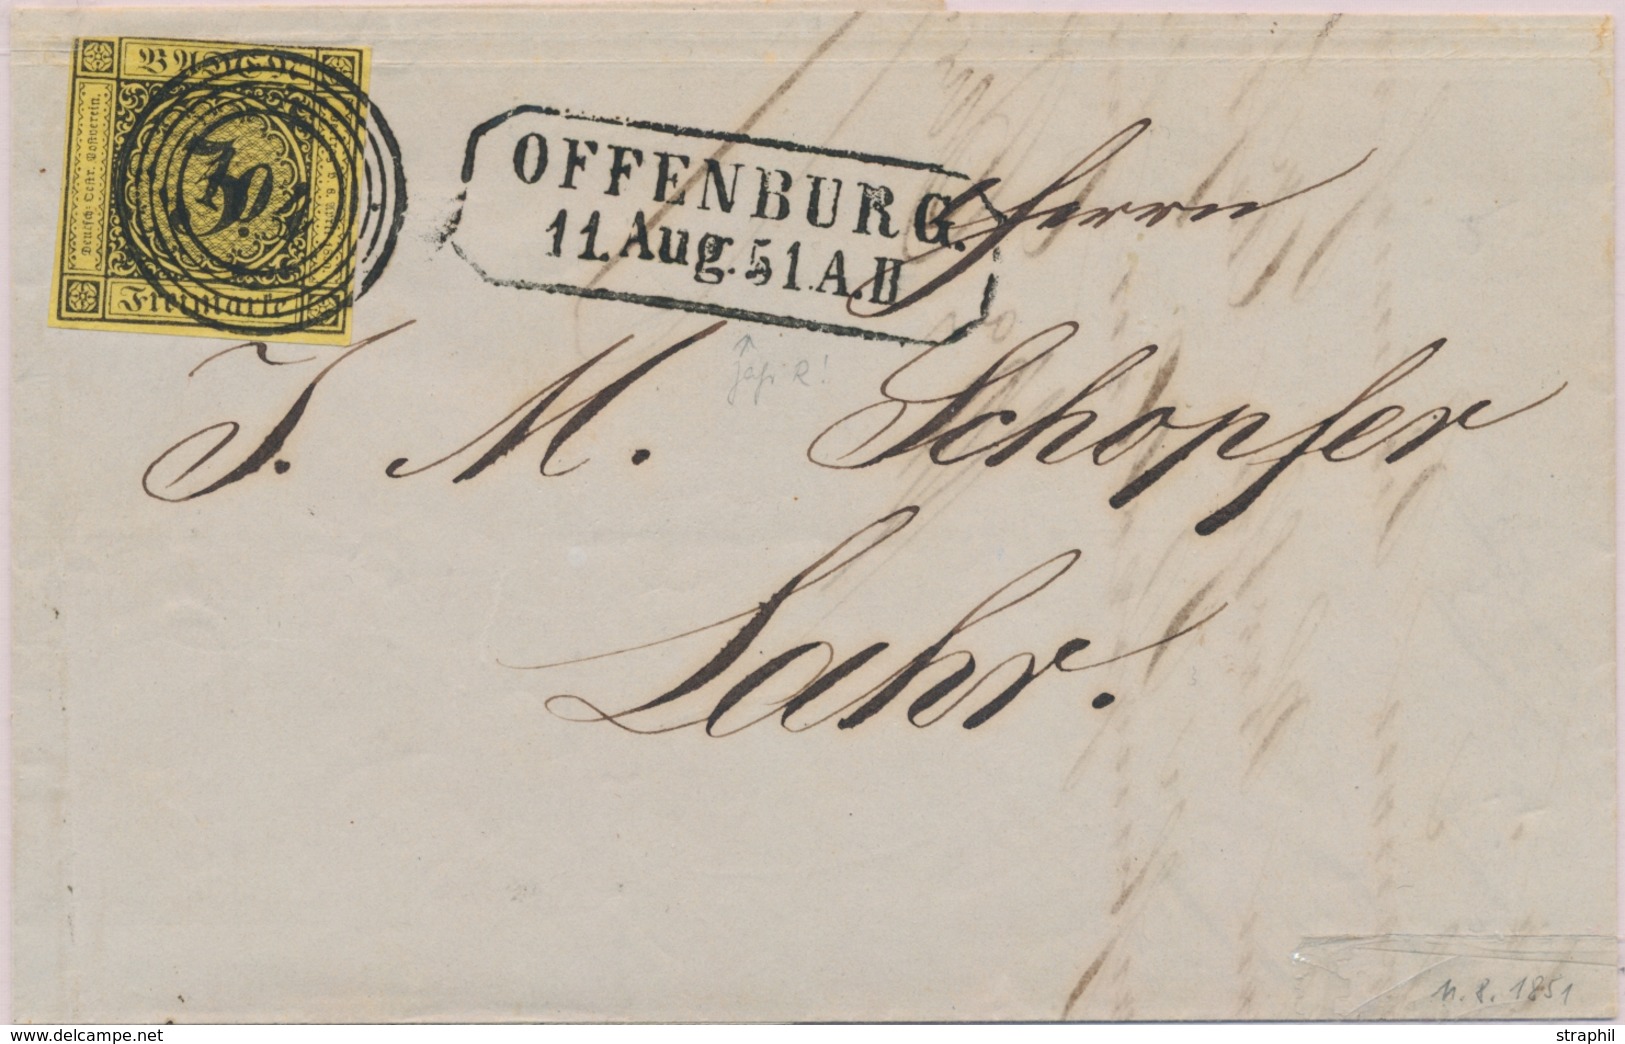 BADEN
Deutsch-Oestr. Postverein.
Freimarke
OFFENBURG.
11.Aug.51.A.II
Herrn
J. M. Schopfer
Lahr.
11. 8. 1851
straphil